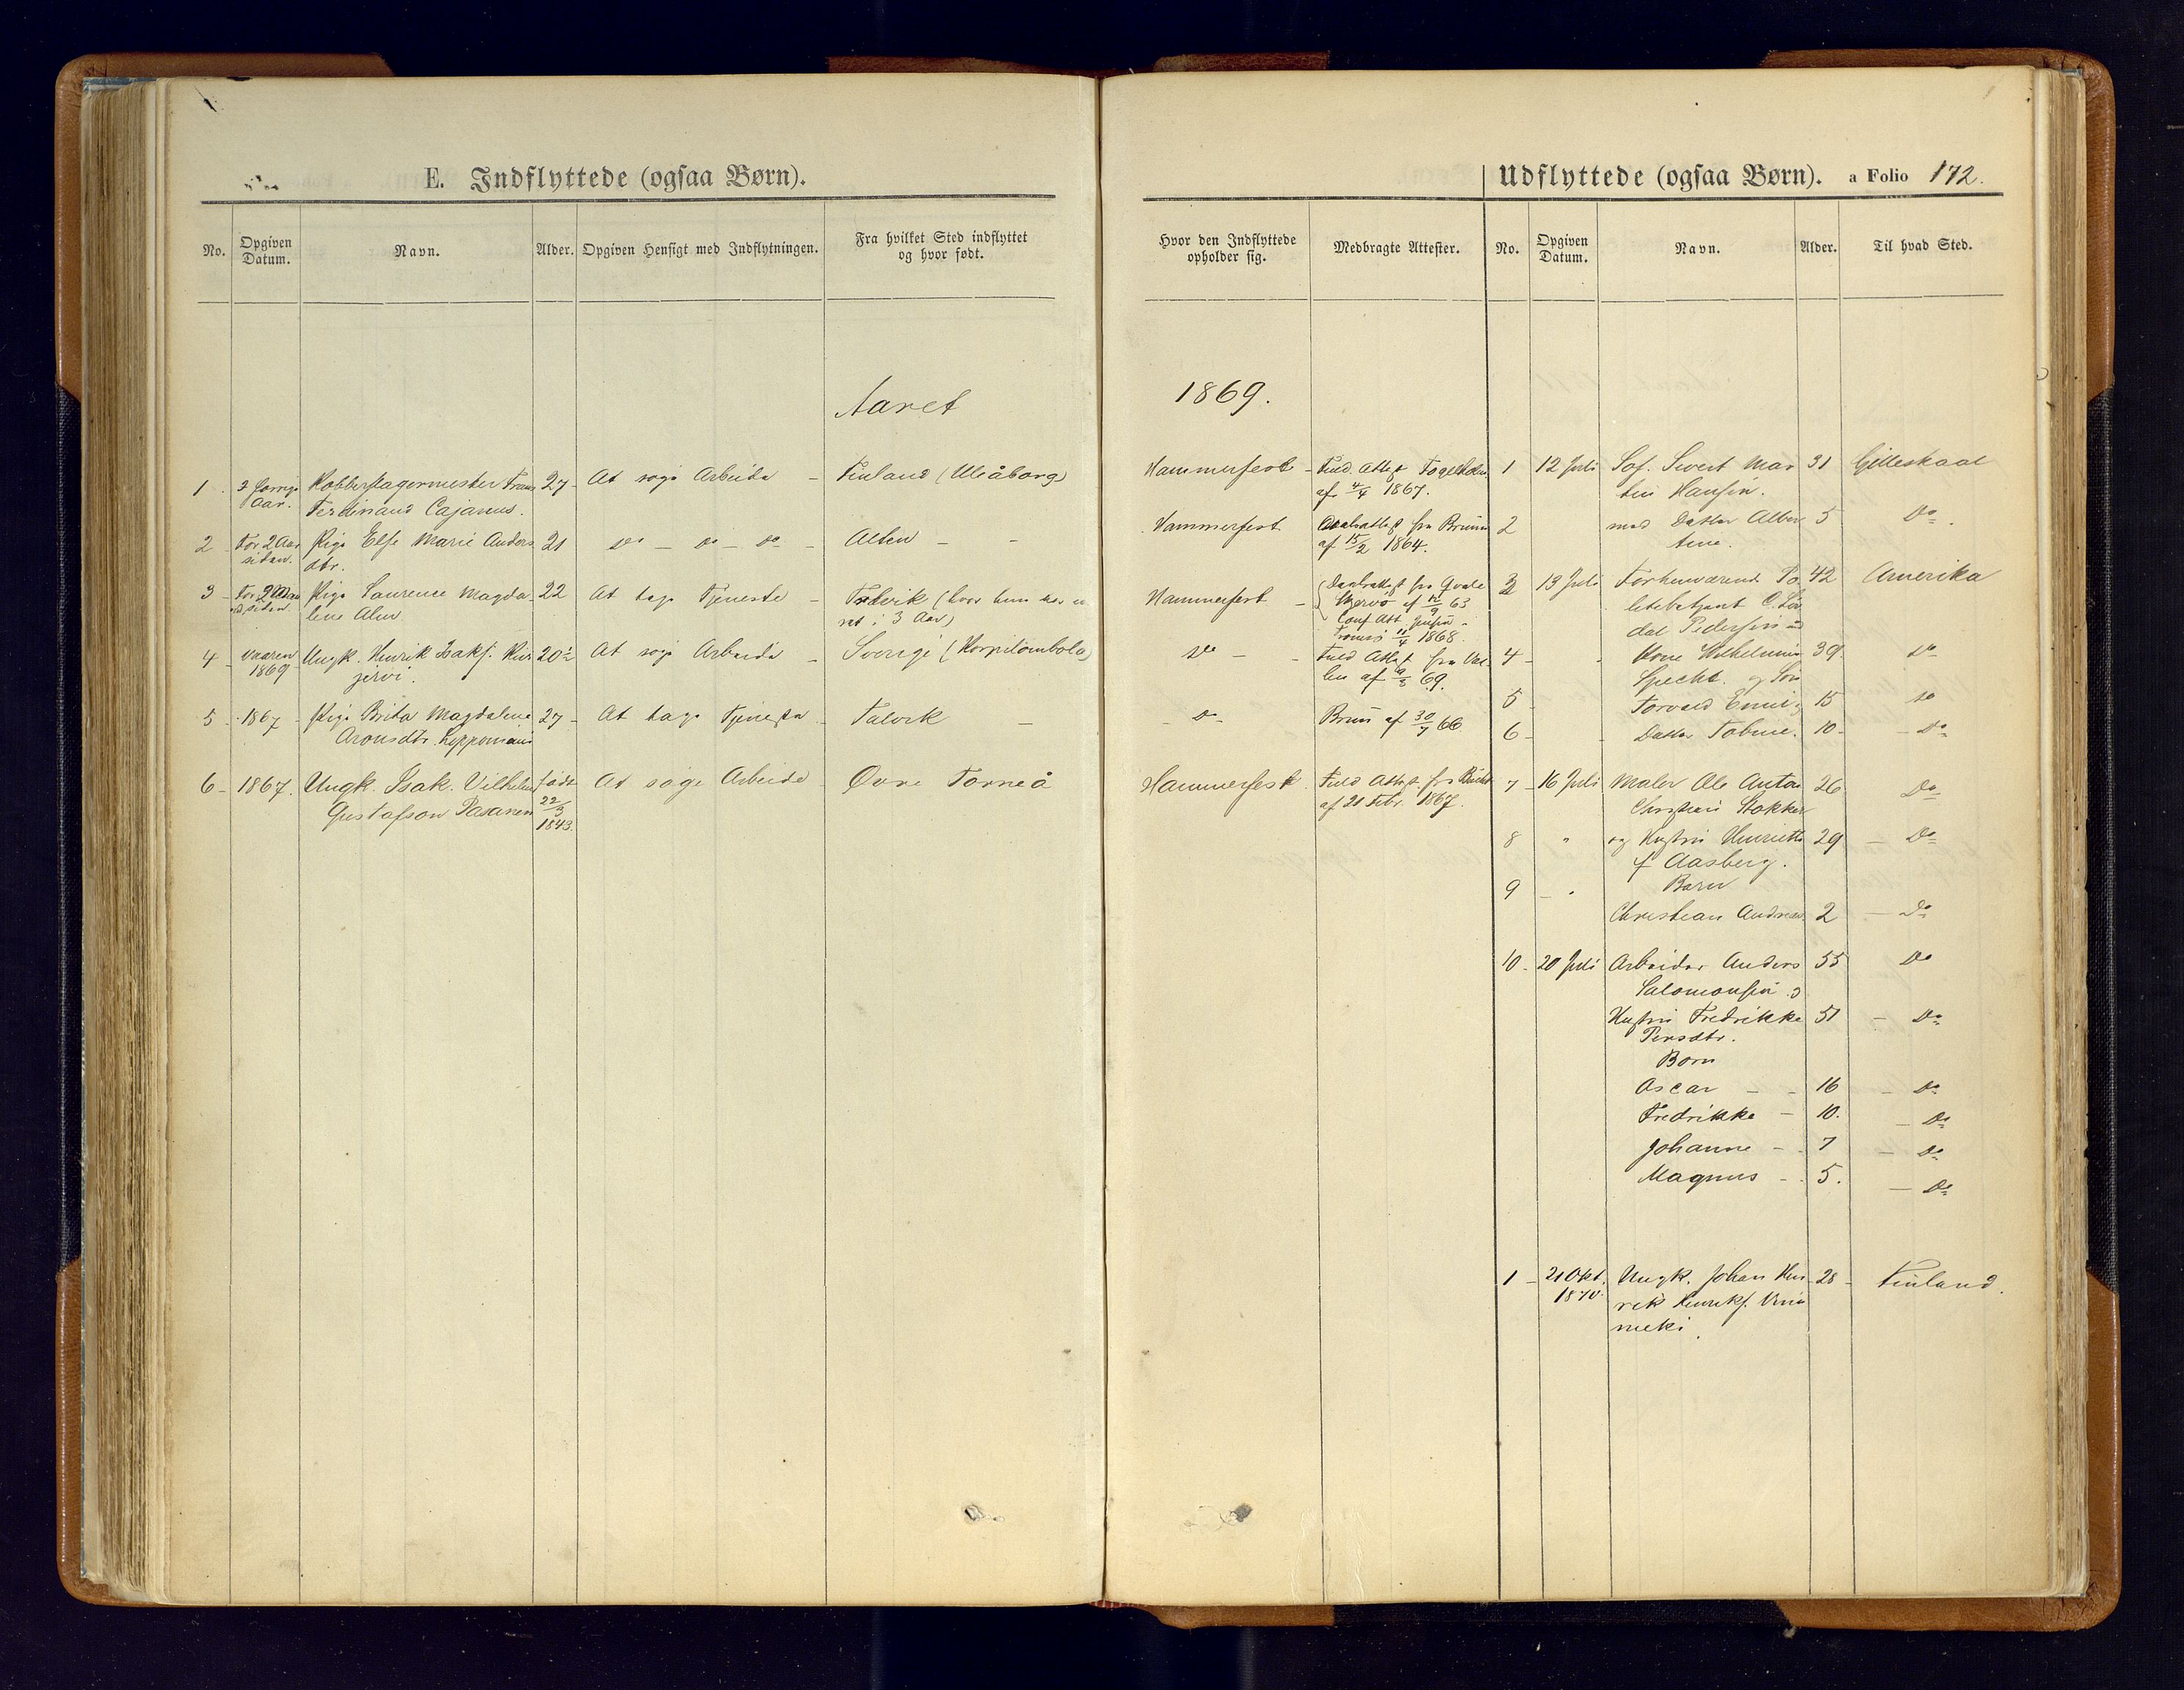 E. Indflyttede (ogsaa Børn).
No.
Opgiven
Datum.
Navn.
Alder.
Opgiven Hensigt med Indflytningen.
Fra hvilket Sted indflyttet
og hvor født.
Aaret
1
Aar.
Kobberslagermester Frans
Ferdinand Cajanus.
27
At søge Arbeide
Finland (Uleåborg)
2
For 2 Aar
siden.
Pige Else Marie Anders
dtr.
21
Do Do Do
Alten
3
siden
Pige Laurence Magda
lene Alm
22
At tage Tjeneste
i 3 Aar)
4
vaaren
1869
Ungk. Henrik Isaks.
jervi.
20½
At søge Arbeide
Sverige (Korpilombola)
5
1867
Pige Brita Magdalene
Aronsdtr.
27
At tage Tjeneste
Talvik
6
1867.
Ungk. Isak Vilhelm
Gustafson Pasanen
født
22/3
1843.
At søge Arbeide
Øvre Torneå
Udflyttede (ogsaa Børn). a Folio 172.
Hvor den Indflyttede
opholder sig.
Medbragte Attester.
No.
Opgiven
Datum.
Navn.
Alder.
Til hvad Sted.
1869.
Hammerfest
af 4/4 1867.
1
12 Juli
Sivert Mar
tin Hansen.
31
Gilleskaal
Hammerfest
af 15/2 1864.
2
med Datter Alber
tine.
5
Do
Hammerfest
Daabsattest fra
af 12/9 63
Conf. Att.
1868.
3
13 Juli
Forhenværende Po
litibetjent
Pedersen
42
Amerika
Do
af 69.
4
Kone Wilhelmine
Specht og Søn
39
Do
Do
af 30/7 66
5
Torvald Emil
15
Do
6
Datter Tobine.
10
Do
Hammerfest
af 21 Febr. 1867.
7
16 Juli
Maler Ole Anton
Christian Stokker
26
Do
8
"
og Hustru Henriette
f Aasberg.
29
Do
9
"
Barn
Christian Andreas
2
Do
10
20 Juli
Arbeider Anders
Salomonsen
55
Do
Hustru Fredrikke
Persdtr.
51
Do
Børn
Oscar
16
Do
Fredrikke
10.
Do
Johanne
7
Do
Magnus
5.
Do
1
21 Okt.
1870.
Ungk. Johan Hen
rik Henriks.
meki
28
Finland.